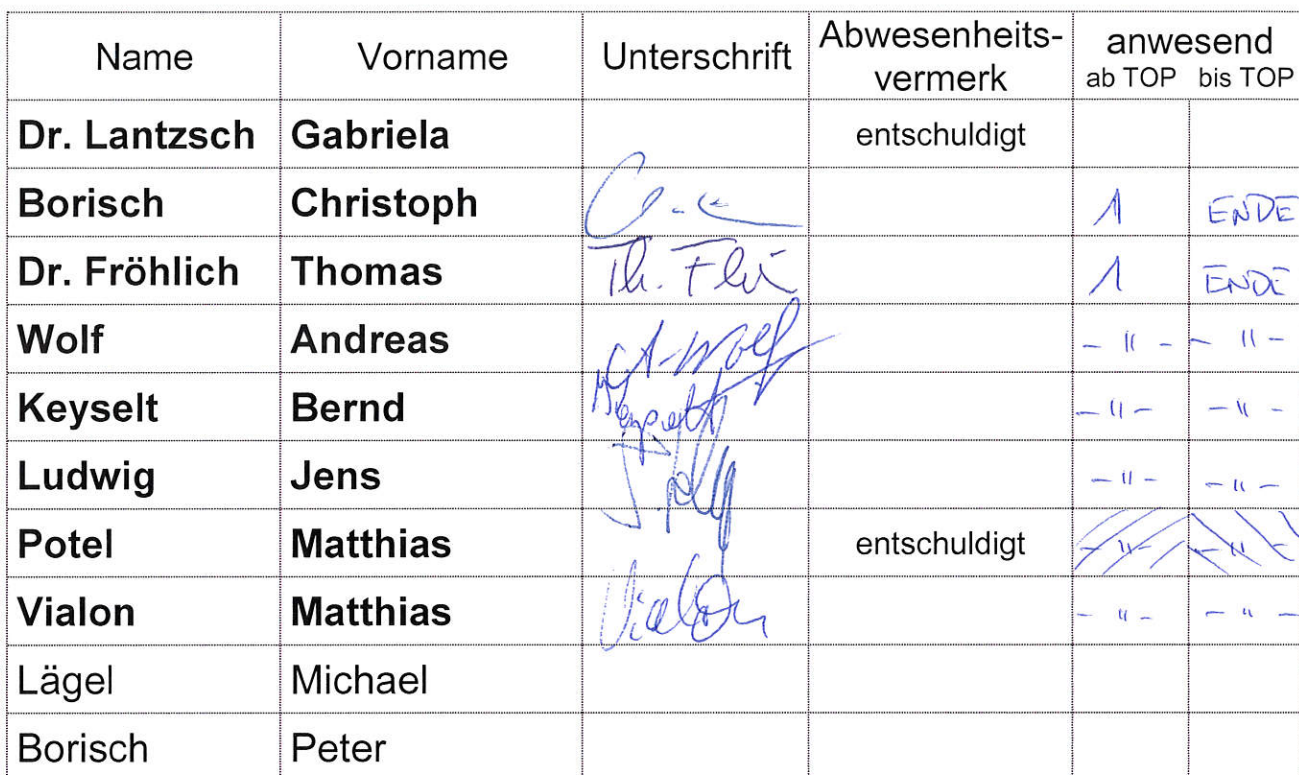 Name Vorname Unterschrift Abwesenheits- anwesend
vermerk ab TOP bis TOP
Dr. Lantzsch Gabriela entschuldigt
Borisch Christoph 1 ENDE
Dr. Fröhlich Thomas Th. 1 ENDE
Wolf Andreas A. Wolf - " - - " -
Keyselt Bernd Keyselt - " - - " -
Ludwig Jens - " - - " -
Potel Matthias entschuldigt - " - - " -
Vialon Matthias Vialon - " - - " -
Lägel Michael
Borisch Peter